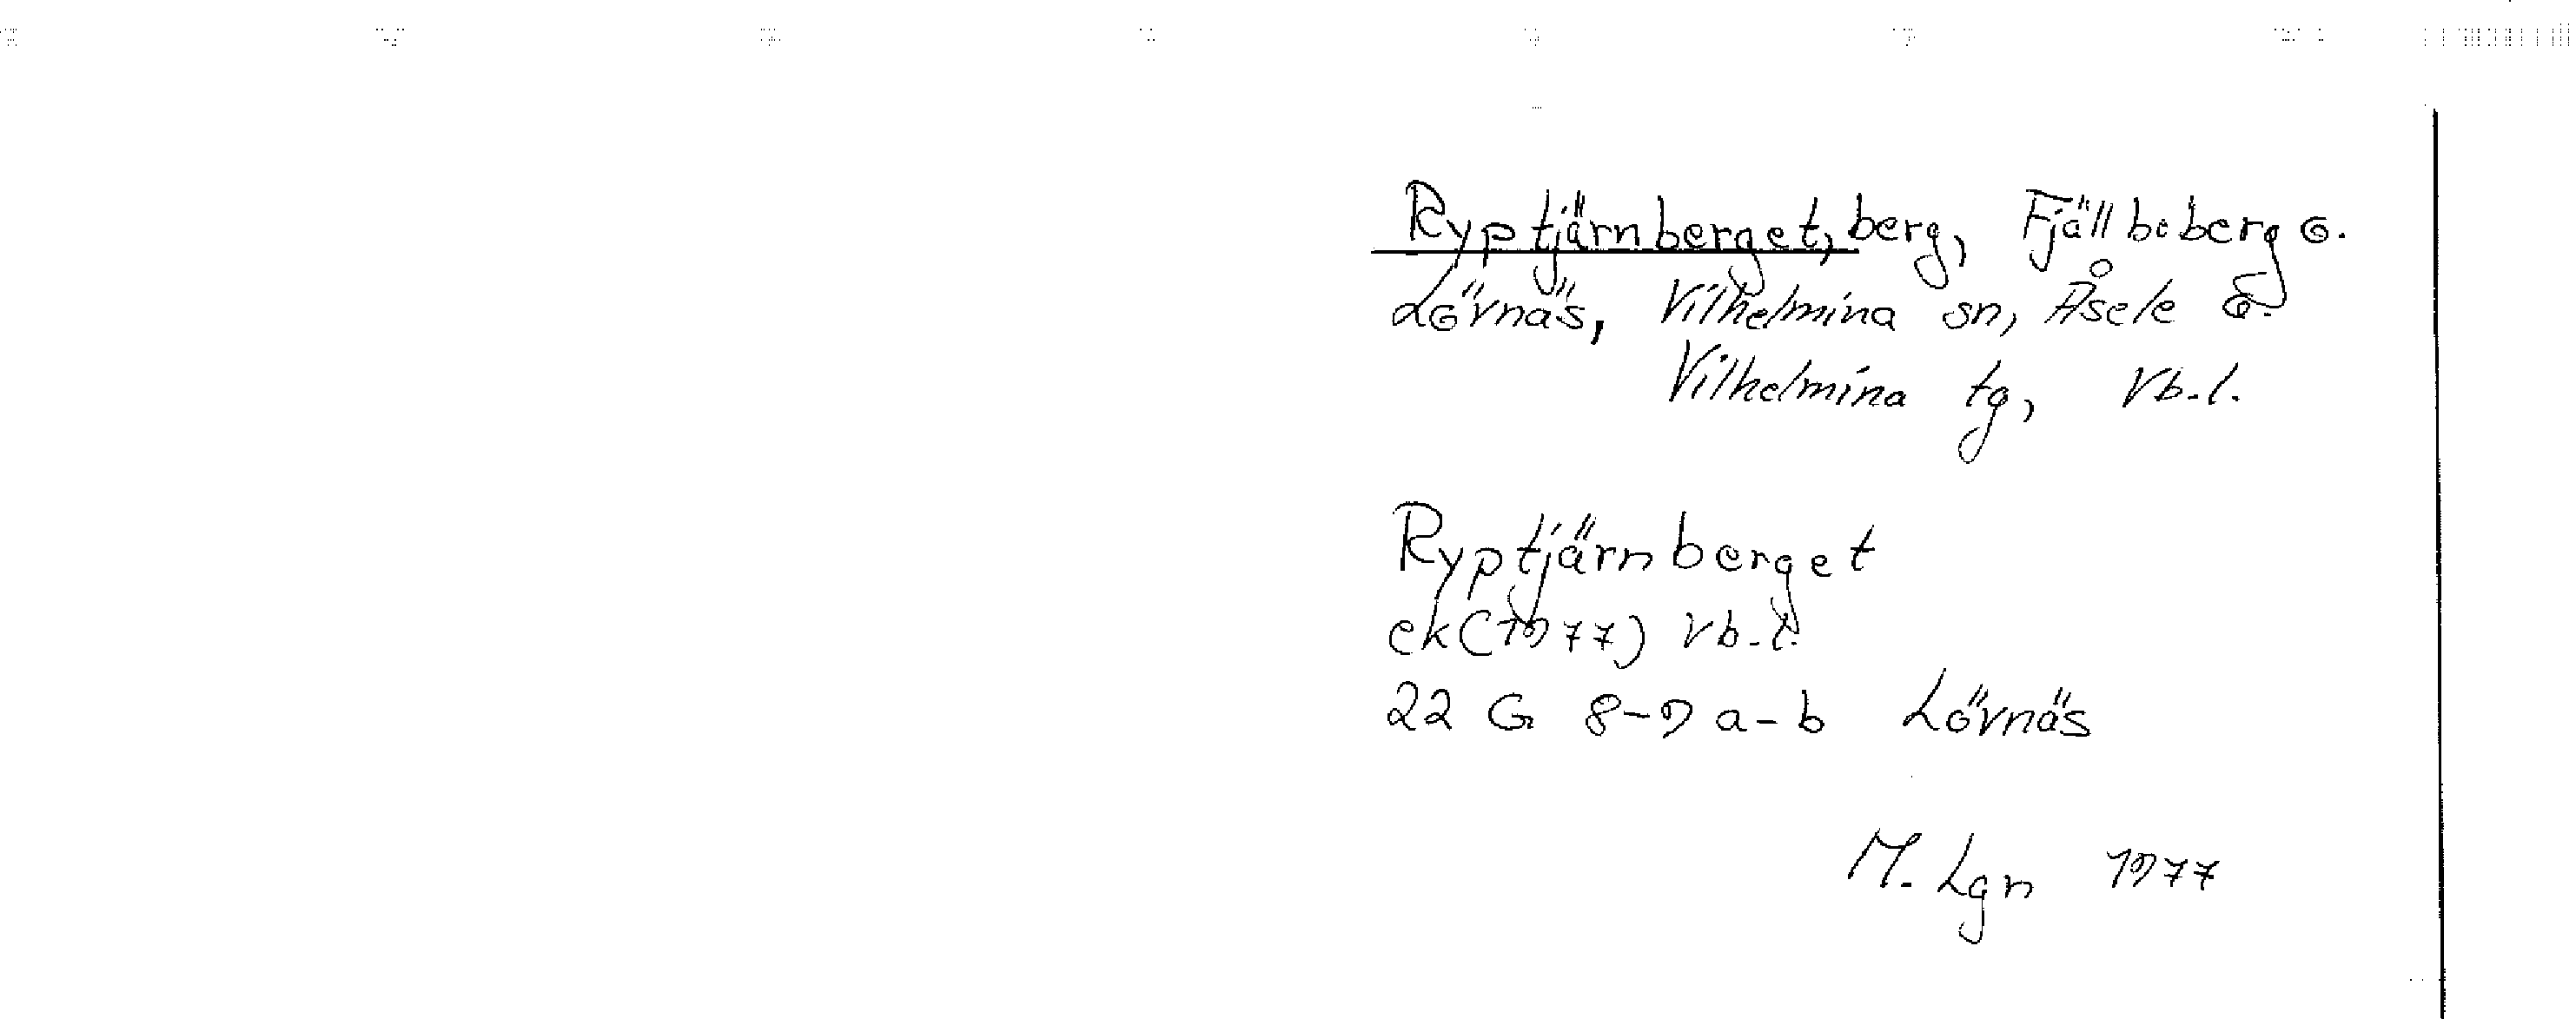 Ryptjärnberget, berg, Fjällboberg o.
Lövnäs, Vilhelmina sn, Åsele
Vilhelmina tg, Vb.l.
Ryptjärnberget
ek(1977) Vb.l.
22 G 8-9 a-b Lövnäs
M. Lgn 1977